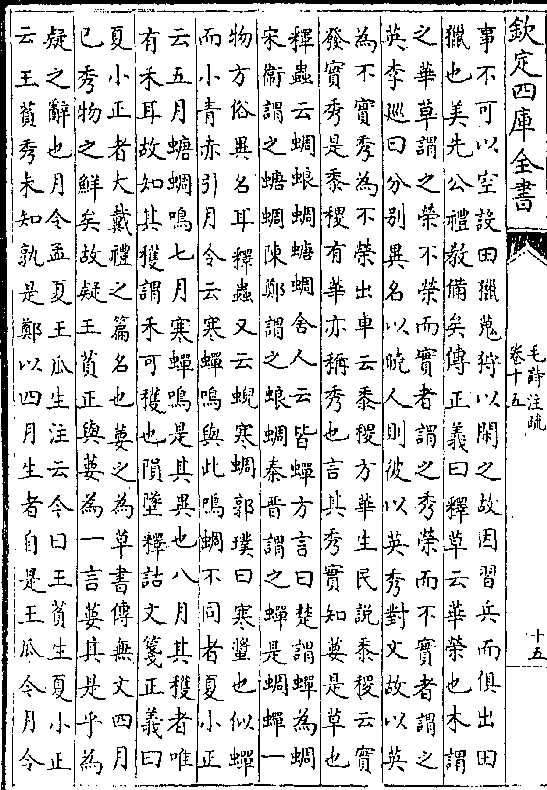 欽定四庫全書
毛詩注疏
卷十五
十五
事不可以空設田獵蒐狩以閑之故因習兵而俱出田
獵也美先公禮教備矣傳正義曰釋草云華榮也木謂
之華草謂之榮不榮而實者謂之秀榮而不實者謂之
英李巡曰分别異名以曉人則彼以英秀對文故以英
為不實秀為不榮出車云黍稷方華生民説黍稷云實
發實秀是黍稷有華亦稱秀也言其秀實知葽是草也
釋蟲云蜩蜋蜩螗蜩舍人云皆蟬方言曰楚謂蟬為蜩
宋衞謂之螗蜩陳鄭謂之蜋蜩秦晉謂之蟬是蜩蟬一
物方俗異名耳釋蟲又云蜺寒蜩郭璞曰寒螿也似蟬
而小青赤引月令云寒蟬鳴與此鳴蜩不同者夏小正
云五月螗蜩鳴七月寒蟬鳴是其異也八月其穫者唯
有禾耳故知其穫謂禾可穫也隕墜釋詁文箋正義曰
夏小正者大戴禮之篇名也葽之為草書傳無文四月
已秀物之鮮矣故疑王萯正與葽為一言葽其是乎為
疑之辭也月令孟夏王瓜生注云今曰王萯生夏小正
云王萯秀未知孰是鄭以四月生者自是王瓜今月令